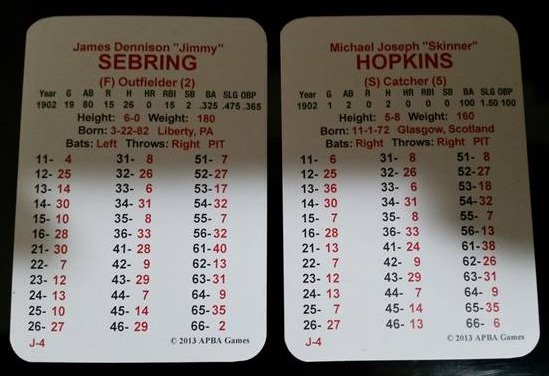 James Dennison "Jimmy"
SEBRING
(F) Outfielder (2)
Year G AB R H HR RBI SB BA SLG OBP
1902 19 80 15 26 0 15 2 .325 .475 .365
Height: 6-0 Weight: 180
Born: 3-22-82 Liberty, PA
Bats: Left Throws: Right PIT
11- 4 31- 8 51- 7
12- 25 32- 26 52- 27
13- 14 33- 6 53- 17
14- 30 34- 31 54- 32
15- 10 35- 8 55- 7
16- 28 36- 33 56- 32
21- 30 41- 28 61- 40
22- 7 42- 9 62- 13
23- 12 43- 29 63- 31
24- 13 44- 7 64- 9
25- 10 45- 14 65- 35
26- 27 46- 29 66- 2
J-4 © 2013 APBA Games
Michael Joseph "Skinner"
HOPKINS
(S) Catcher (5)
Year G AB R H HR RBI SB BA SLG OBP
1902 1 2 0 2 0 0 0 100 1.50 100
Height: 5-8 Weight: 160
Born: 11-1-72 Glasgow, Scotland
Bats: Right Throws: Right PIT
11- 6 31- 8 51- 8
12- 25 32- 26 52- 27
13- 36 33- 6 53- 18
14- 30 34- 31 54- 32
15- 7 35- 8 55- 7
16- 28 36- 33 56- 13
21- 31 41- 24 61- 38
22- 7 42- 9 62- 26
23- 12 43- 29 63- 31
24- 13 44- 7 64- 9
25- 7 45- 14 65- 35
26- 28 46- 13 66- 6
J-4 © 2013 APBA Games